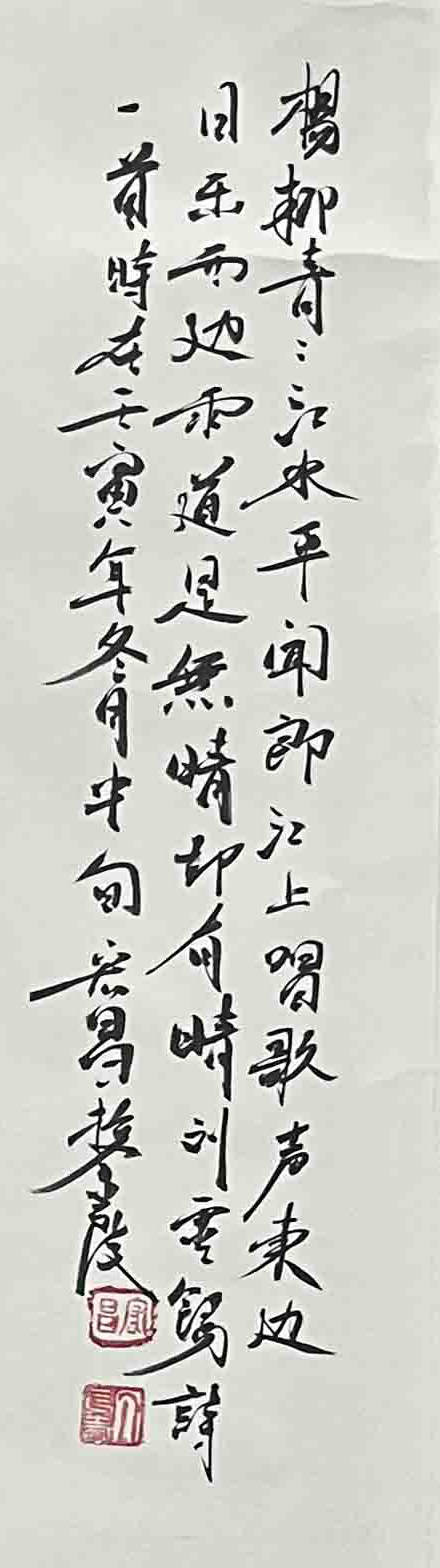 楊柳青々江水平闻郎江上唱歌声東边
日出西边雨道是無晴却有晴刘禹錫詩
一首時在壬寅年冬月中旬宏昌